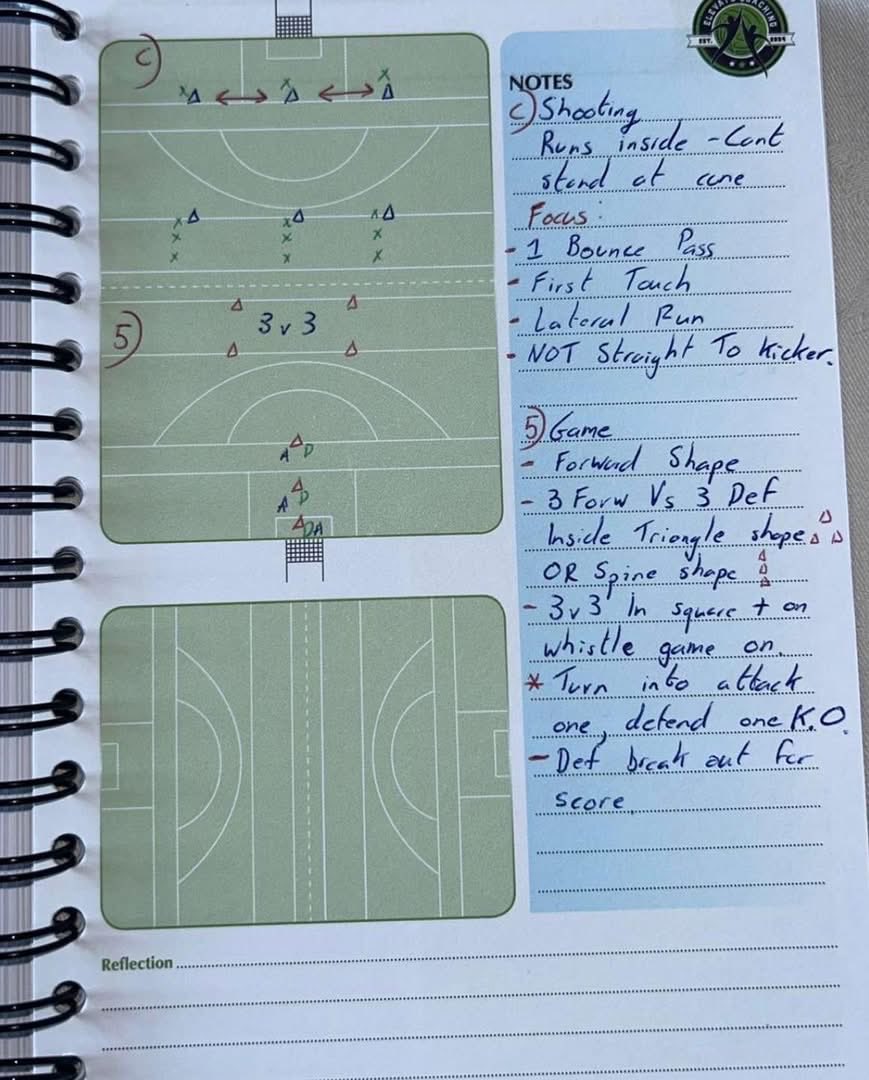 ELEVATE COACHING
EST. 2024
C)
x x x
x x x
x x x
x x x
5)
3 v 3
A D
A D
DA
NOTES
C) Shooting
Runs inside - Cant
stand at cone
Focus:
- 1 Bounce Pass
- First Touch
- Lateral Run
- NOT Straight To Kicker.
5) Game
- Forward Shape
- 3 Forw Vs 3 Def
Inside Triangle shape
OR Spine shape
- 3v3 In square + on
whistle game on.
* Turn into attack
one, defend one K.O.
- Def break out for
score.
Reflection